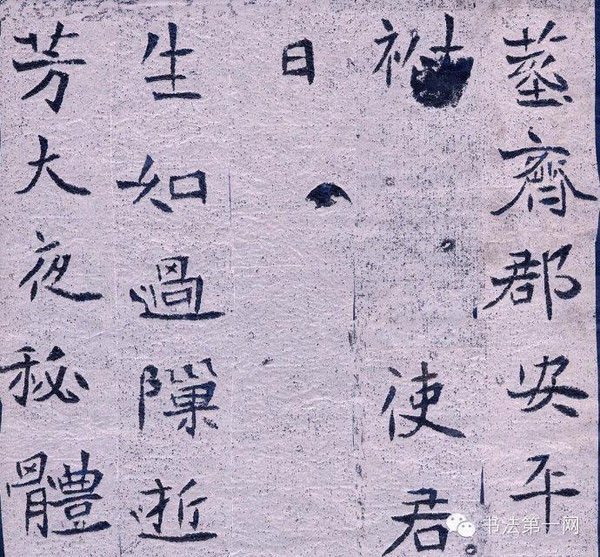 塟齊郡安平
使君
日
生如過隟逝
芳大夜秘體
书法第一网